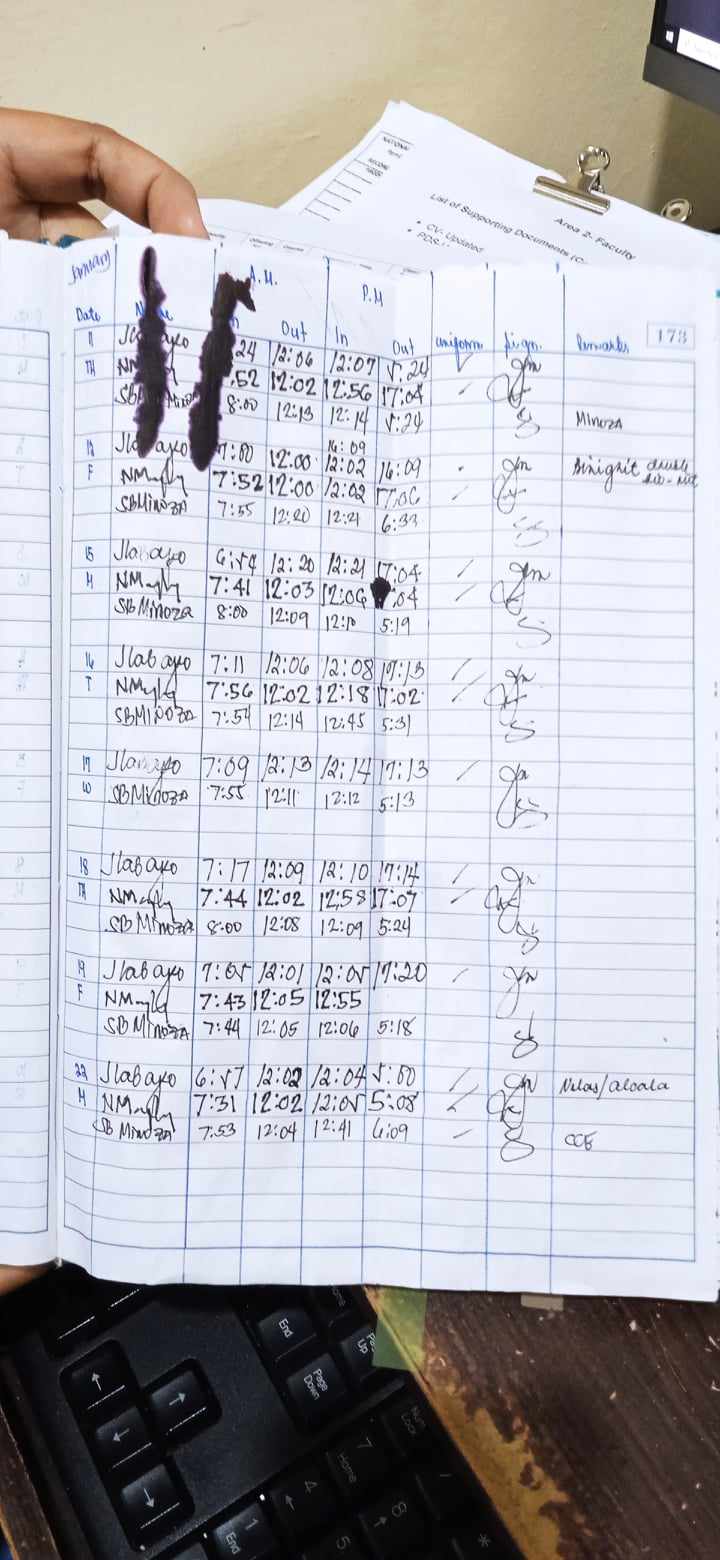 NATIONAL
Area 2- Faculty
List of Supporting Documents
• CV- Updated
• PDS
January A.M. P.M 173
Date In Out In Out uniform sign. Remarks
11 24 12:06 12:07 5:24
TH :52 12:02 12:56 17:04
8:00 12:13 12:14 5:24 Minoza
16:09
12 7:00 12:00 12:02 16:09
F 7:52 12:00 12:02 17:06
SBMINOZA 7:55 12:20 12:21 6:33
15 Jlabayo 6:54 12:20 12:21 17:04
M 7:41 12:03 12:06 :04
SBMinoza 8:00 12:09 12:10 5:19
16 Jlabayo 7:11 12:06 12:08 17:13
T 7:56 12:02 12:18 17:02
SBMINOZA 7:54 12:14 12:45 5:31
17 Jlabayo 7:09 12:13 12:14 17:13
W SBMinoza 7:55 12:11 12:12 5:13
18 Jlabayo 7:17 12:09 12:10 17:14
TH 7:44 12:02 12:58 17:07
SBMinoza 8:00 12:08 12:09 5:24
19 Jlabayo 7:05 12:01 12:05 17:20
F 7:43 12:05 12:55
SBMinoza 7:44 12:05 12:06 5:18
22 Jlabayo 6:57 12:02 12:04 5:00
M 7:31 12:02 12:05 5:08
SB Minoza 7:53 12:04 12:41 6:09 CCE
End
Home
Page Up
Page Down
Num Lock
7 Home
4
8
5
1 End
*